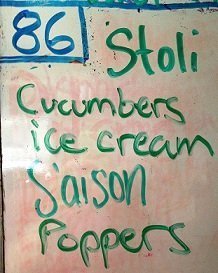 86
Stoli
Cucumbers
ice cream
Saison
Poppers